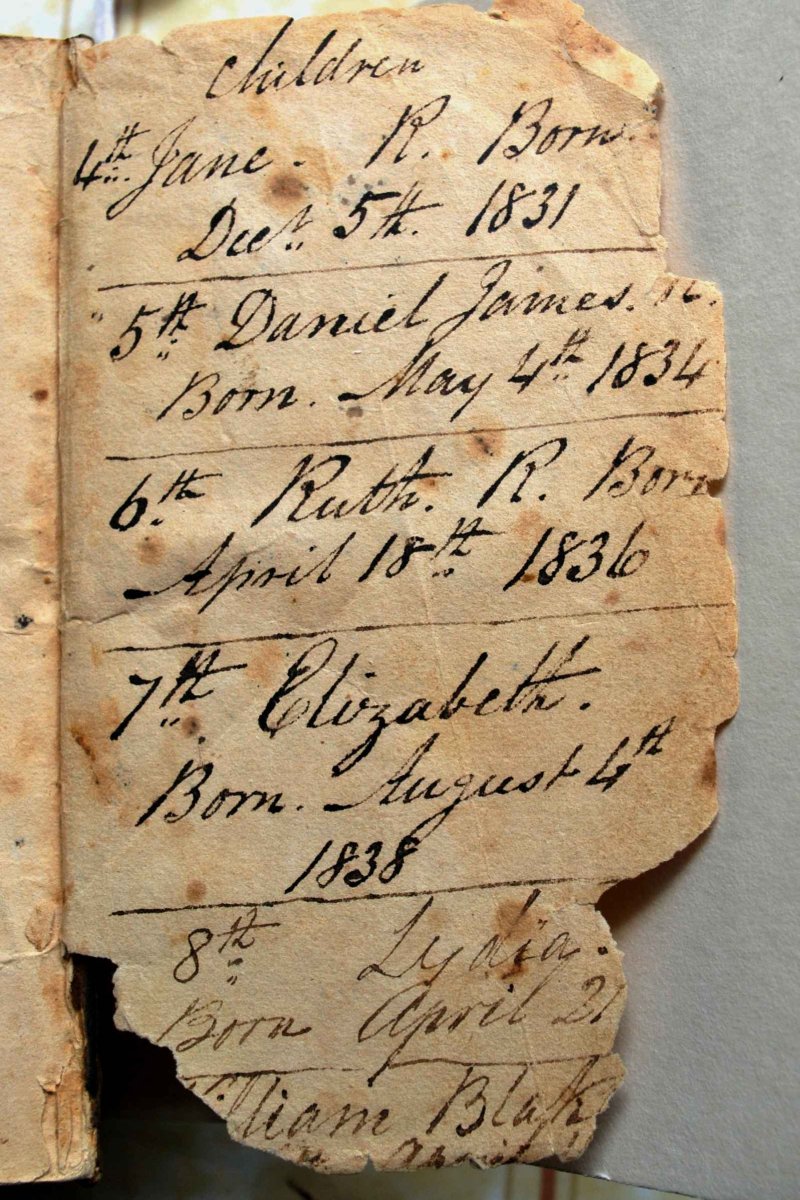 children
4th Jane. R. Born.
Decr. 5th. 1831
5th Daniel James. R.
Born. May 4th 1834
6th Ruth. R. Born
April 18th 1836
7th Elizabeth.
Born. August 4th
1838
8th Lydia.
Born April 21
William Blak
April